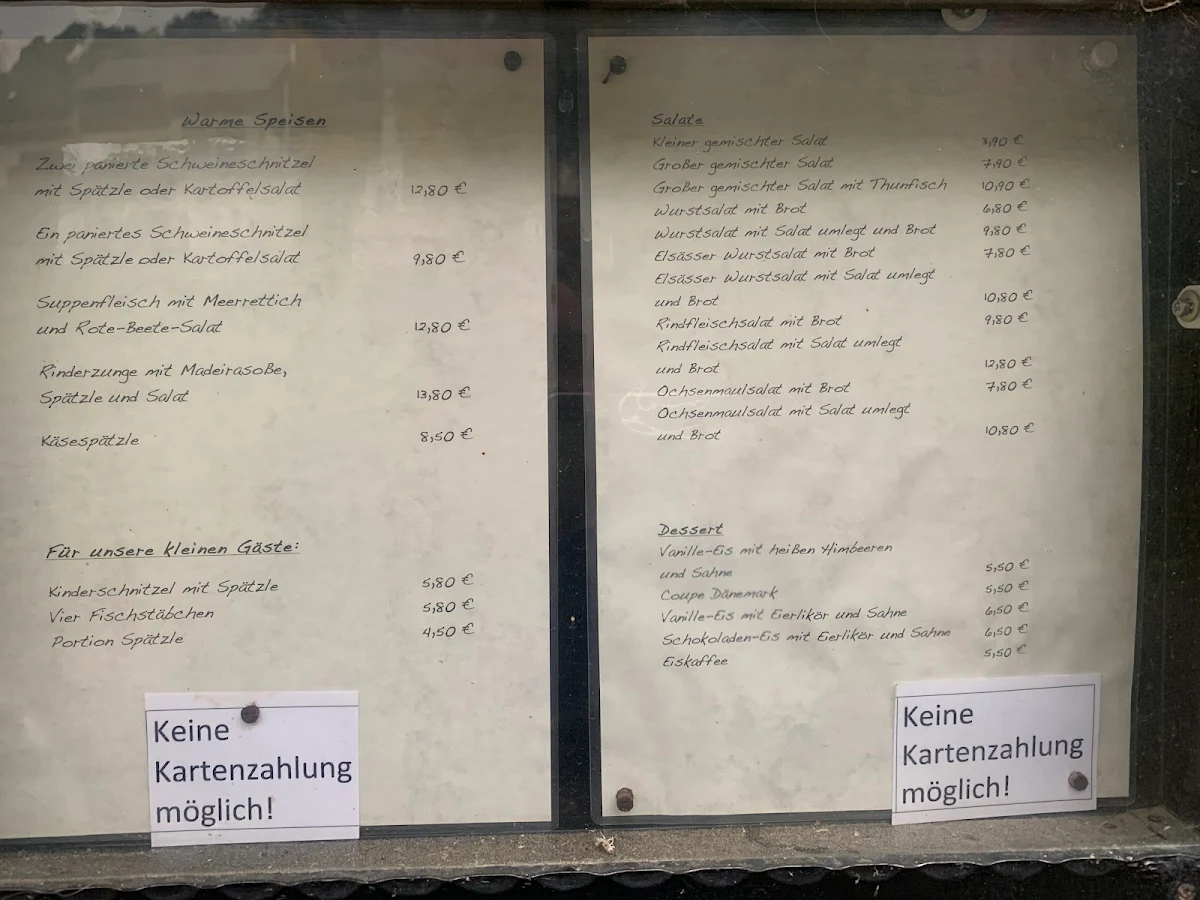 Warme Speisen
Zwei panierte Schweineschnitzel
mit Spätzle oder Kartoffelsalat 12,80 €
Ein paniertes Schweineschnitzel
mit Spätzle oder Kartoffelsalat 9,80 €
Suppenfleisch mit Meerrettich
und Rote-Beete-Salat 12,80 €
Rinderzunge mit Madeirasoße,
Spätzle und Salat 13,80 €
Käsespätzle 8,50 €
Für unsere kleinen Gäste:
Kinderschnitzel mit Spätzle 5,80 €
Vier Fischstäbchen 5,80 €
Portion Spätzle 4,50 €
Keine
Kartenzahlung
möglich!
Salate
Kleiner gemischter Salat 3,90 €
Großer gemischter Salat 7,90 €
Großer gemischter Salat mit Thunfisch 10,90 €
Wurstsalat mit Brot 6,80 €
Wurstsalat mit Salat umlegt und Brot 9,80 €
Elsässer Wurstsalat mit Brot 7,80 €
Elsässer Wurstsalat mit Salat umlegt
und Brot 10,80 €
Rindfleischsalat mit Brot 9,80 €
Rindfleischsalat mit Salat umlegt
und Brot 12,80 €
Ochsenmaulsalat mit Brot 7,80 €
Ochsenmaulsalat mit Salat umlegt
und Brot 10,80 €
Dessert
Vanille-Eis mit heißen Himbeeren
und Sahne 5,50 €
Coupe Dänemark 5,50 €
Vanille-Eis mit Eierlikör und Sahne 6,50 €
Schokoladen-Eis mit Eierlikör und Sahne 6,50 €
Eiskaffee 5,50 €
Keine
Kartenzahlung
möglich!